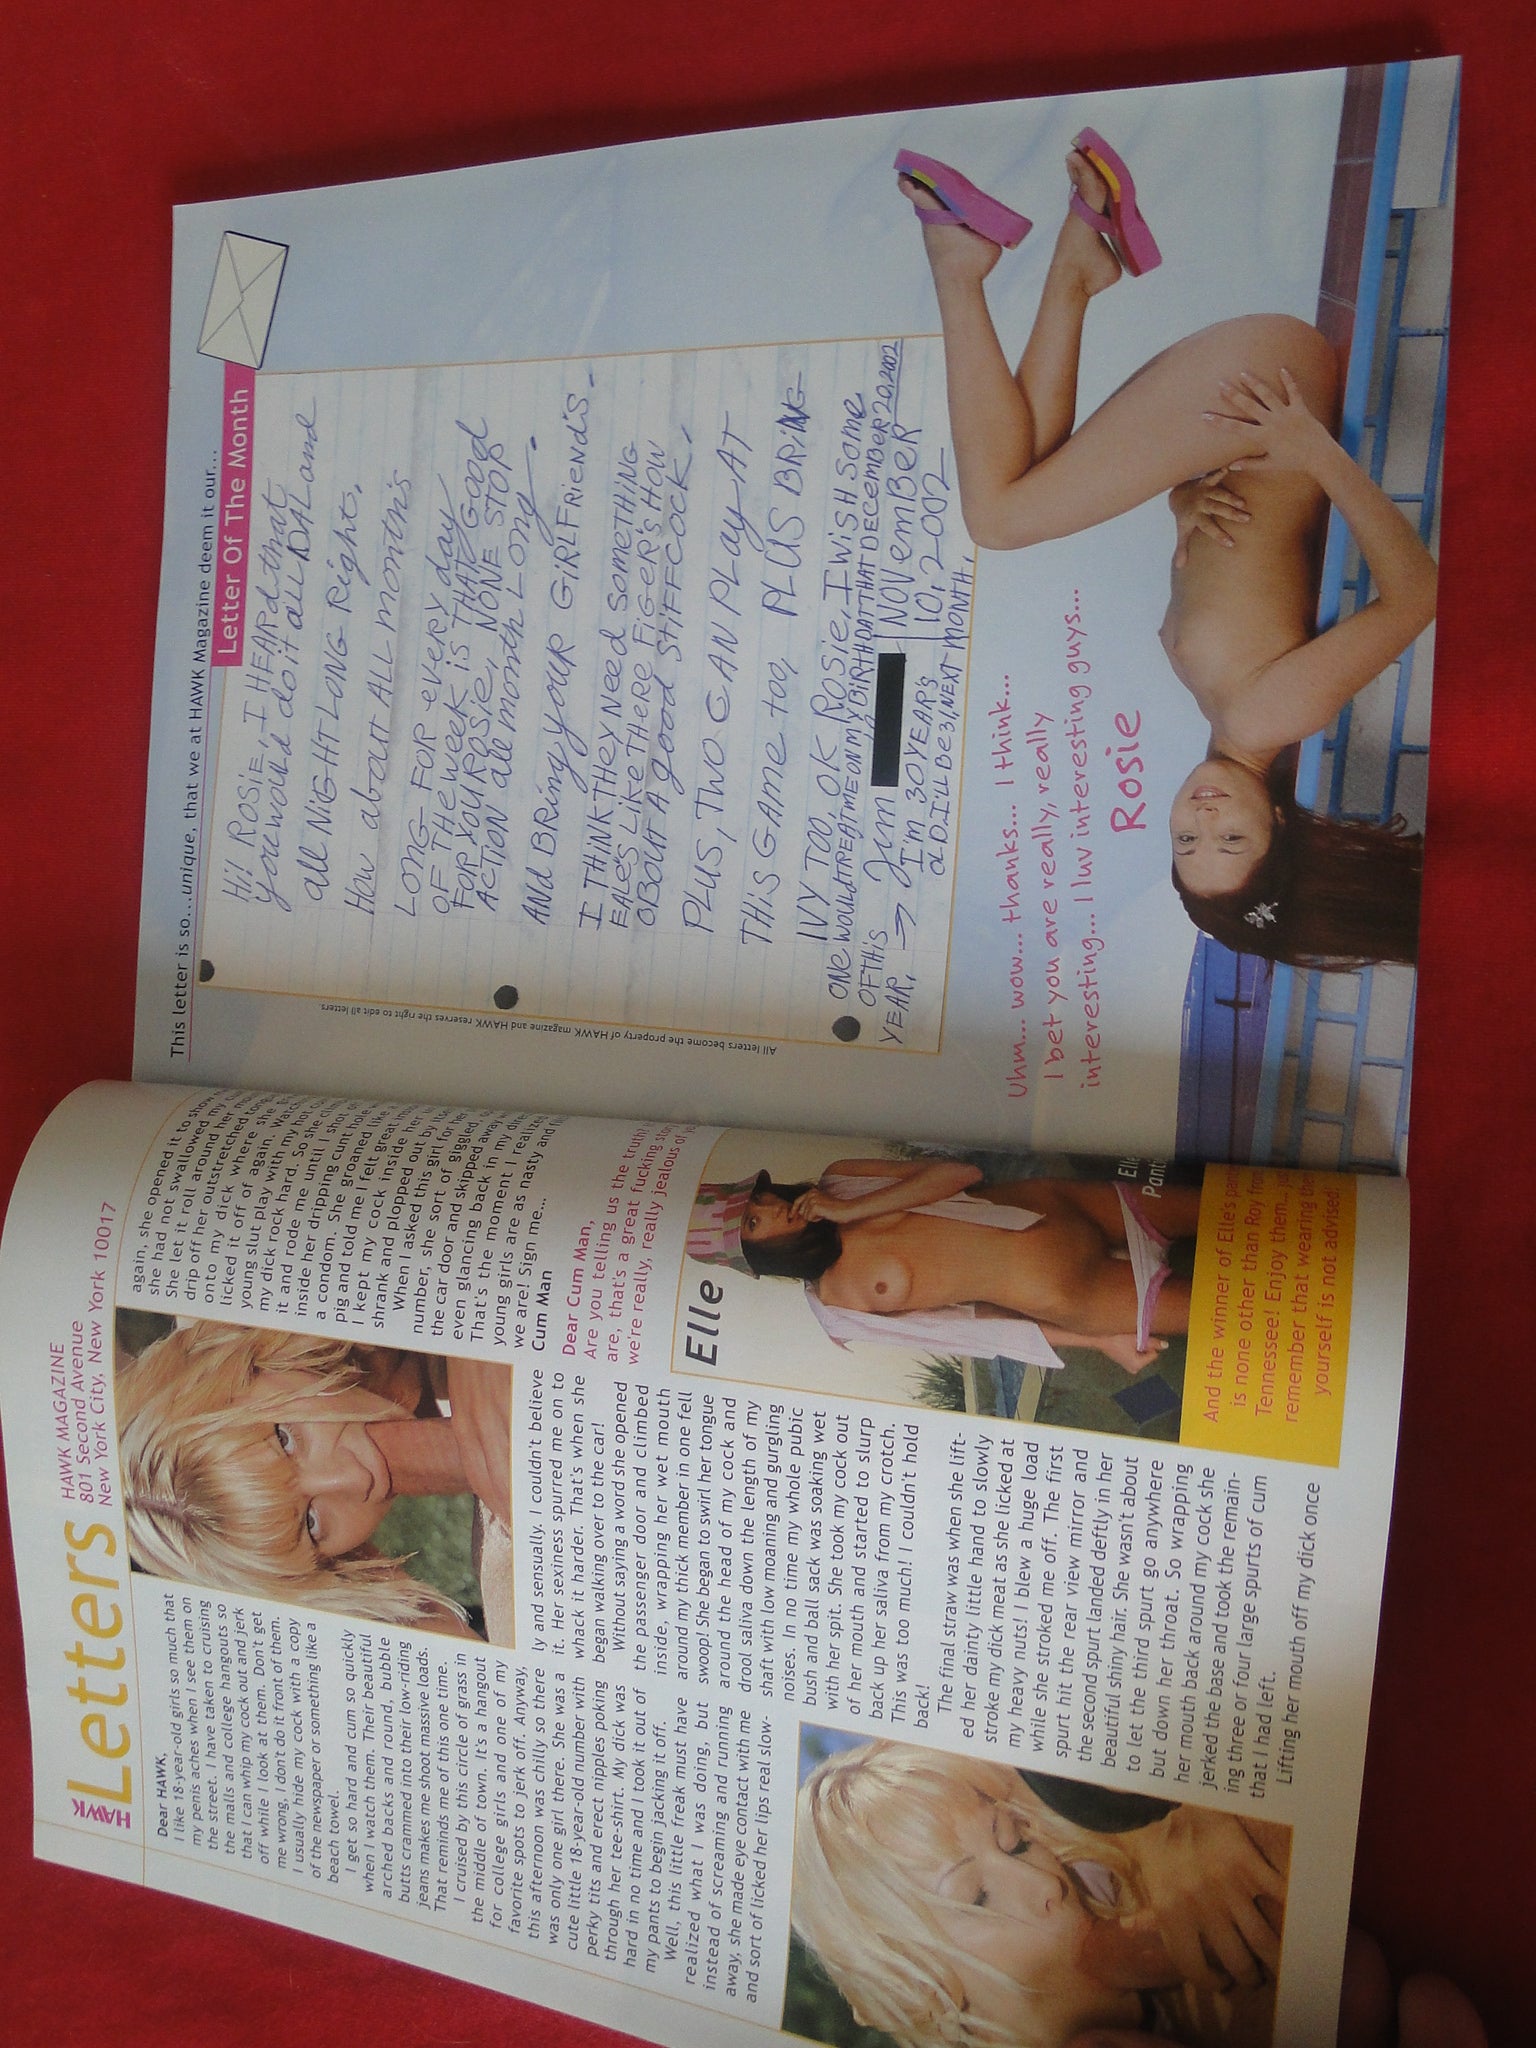 HAWK Letters
HAWK MAGAZINE
801 Second Avenue
New York City, New York 10017
Dear HAWK,
I like 18-year-old girls so much that
my penis aches when I see them on
the street. I have taken to cruising
the malls and college hangouts so
that I can whip my cock out and jerk
off while I look at them. Don't get
me wrong, I don't do it front of them.
I usually hide my cock with a copy
of the newspaper or something like a
beach towel.
I get so hard and cum so quickly
when I watch them. Their beautiful
arched backs and round, bubble
butts crammed into their low-riding
jeans makes me shoot massive loads.
That reminds me of this one time.
I cruised by this circle of grass in
the middle of town. It's a hangout
for college girls and one of my
favorite spots to jerk off. Anyway,
this afternoon was chilly so there
was only one girl there. She was a
cute little 18-year-old number with
perky tits and erect nipples poking
through her tee-shirt. My dick was
hard in no time and I took it out of
my pants to begin jacking it off.
Well, this little freak must have
realized what I was doing, but
instead of screaming and running
away, she made eye contact with me
and sort of licked her lips real slow-
ly and sensually. I couldn't believe
it. Her sexiness spurred me on to
whack it harder. That's when she
began walking over to the car!
Without saying a word she opened
the passenger door and climbed
inside, wrapping her wet mouth
around my thick member in one fell
swoop! She began to swirl her tongue
around the head of my cock and
drool saliva down the length of my
shaft with low moaning and gurgling
noises. In no time my whole pubic
bush and ball sack was soaking wet
with her spit. She took my cock out
of her mouth and started to slurp
back up her saliva from my crotch.
This was too much! I couldn't hold
back!
The final straw was when she lift-
ed her dainty little hand to slowly
stroke my dick meat as she licked at
my heavy nuts! I blew a huge load
while she stroked me off. The first
spurt hit the rear view mirror and
the second spurt landed deftly in her
beautiful shiny hair. She wasn't about
to let the third spurt go anywhere
but down her throat. So wrapping
her mouth back around my cock she
jerked the base and took the remain-
ing three or four large spurts of cum
that I had left.
Lifting her mouth off my dick once
again, she opened it to show
she had not swallowed my
She let it roll around her
drip off her outstretched
onto my dick
licked it off of where she
young slut play with my hot
my dick rock hard. So she
it and rode me until I shot
inside her dripping cunt hole
a condom. She groaned like
pig and told me I felt great
I kept my cock inside her
shrank and plopped out by
When I asked this girl for her
number, she sort of giggled,
the car door and skipped away
even glancing back in my
That's the moment I realized
young girls are as nasty and
we are! Sign me...
Cum Man
Dear Cum Man,
Are you telling us the truth?
are, that's a great fucking
we're really, really jealous of
Elle
And the winner of Elle's
is none other than Roy from
Tennessee! Enjoy them...
remember that wearing
yourself is not advised.
This letter is so...unique, that we at HAWK Magazine deem it our...
Letter Of The Month
Hi! ROSIE, I HEARd that
you would do it all DAL and
all NiGHT LONG Right,
How about ALL month's
LONG FOR every day
OF THe week is THAT GOOd
FOR YOU ROSIE, NONE STOP
ACTION all month LONg.
ANd BRing yOUR GiRLFRiend'S.
I THiNK THey Need SomeTHiNG
EALe'S LiKe THeRe FiGeR'S HOW
OBOUT A good STiFF COCK,
PLUS, TWO CAN PLay AT
THiS GAMe too, PLUS BRiNG
IVY TOO, OK ROSie, I WiSH Some
ONe WOULd TREAT me ON my BiRTHDAT THAT DeCemBeR 20, 2002
OF THiS
YEAR, → Jim | NOVemBeR
I'm 30 YEAR'S | 10, 2002
OLD. I'LL Be 31, NEXT MONTH,
All letters become the property of HAWK magazine and HAWK reserves the right to edit all letters.
Uhm... wow... thanks... I think...
I bet you are really, really
interesting... I luv interesting guys...
Rosie